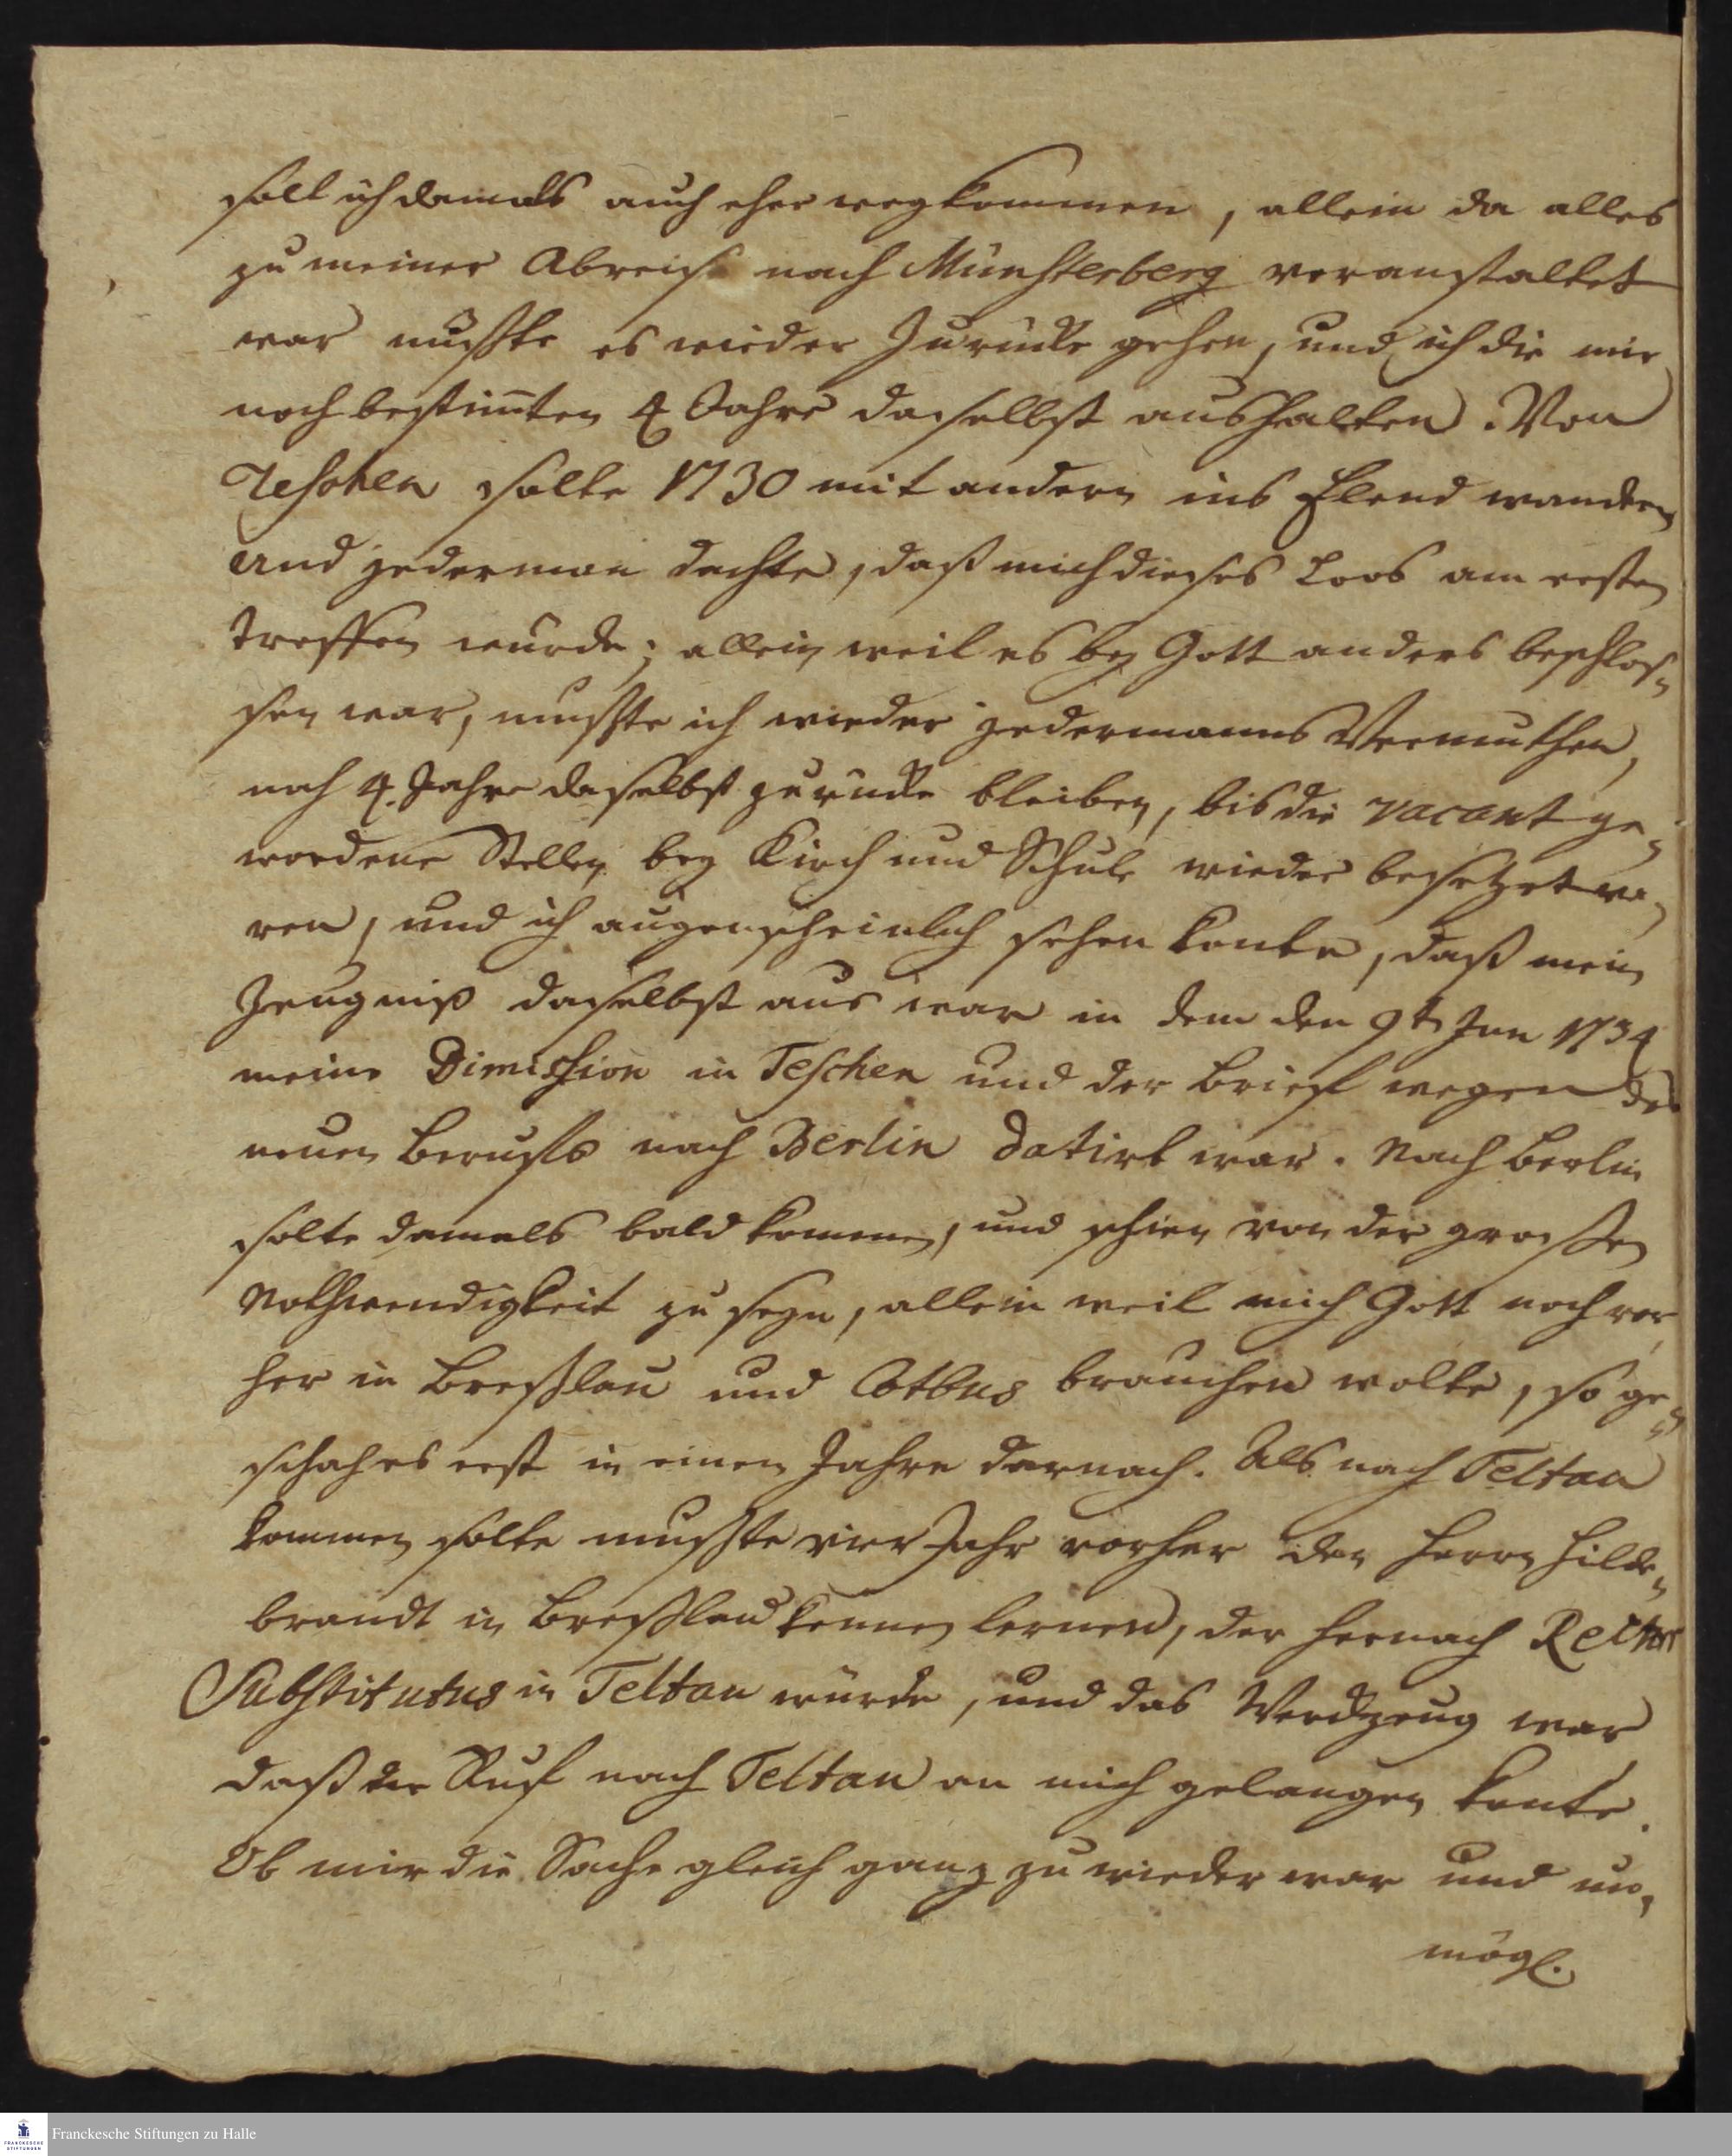 solt ich damals auch eher wegkommen, allein da alles
zu meiner Abreise nach Münsterberg veranstaltet
war mußte es wieder Zurücke gehen, und ich die mir
noch bestim̅ten 4 Jahre daselbst aushalten. Von
Teschen solte 1730 mit andern ins Elend wandern
und jederman dachte, daß mich dieses Loos am ersten
treffen wurde; allein weil es bey Gott anders beschloß-
sen war, mußte ich wieder jedermanns Vermuthen,
noch 4. Jahre daselbst zurücke bleiben, bis die vacant ge-
wordene Stellen bey Kirch und Schule wieder besetzet wa-
ren, und ich augenscheinlich sehen konte, daß mein
Zeugniß daselbst aus war in dem den 9t Jun 1734
meine Dimission in Teschen und der Brief wegen des
neuen Beruffs nach Berlin datirt war. Nach Berlin
solte damals bald kommen, und schien von der grosten
Nothwendigkeit zu seyn, allein weil mich Gott noch vor
her in Breßlau und Cotbus brauchen wolte, so ge-
schah es erst in einen Jahre darnach. Als nach Teltau
kommen solte mußte vier Jahr vorher den Herrn Hilde-
brandt in Breßlau kennen lernen, der hernach Rector
Substitutus in Teltau würde, und das Werckzeug war
daß der Ruf nach Teltau an mich gelangen konte.
Ob mir die Sache gleich ganz zu wieder war und un-
mögl.
Franckesche Stiftungen zu Halle
FRANCKESCHE
STIFTUNGEN